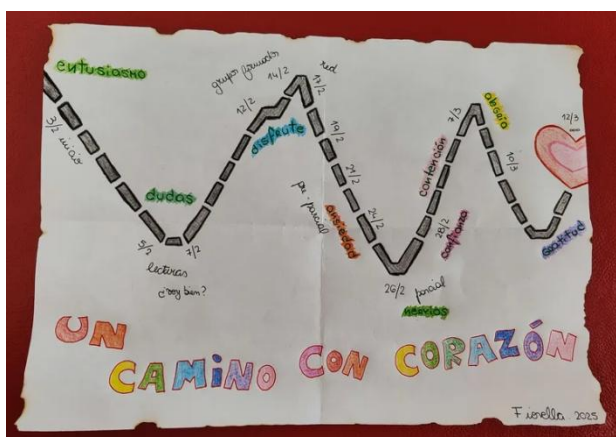 entusiasmo
3/2 inicio
dudas
5/2
7/2
lecturas
¿voy bien?
grupos formados
12/2
14/2
disfrute
red
17/2
19/2
21/2
24/2
pre-parcial
ansiedad
26/2
parcial
nervios
28/2
contención
confianza
7/3
abrazo
10/3
12/3
gratitud
UN
CAMINO CON CORAZÓN
Fiorella 2025